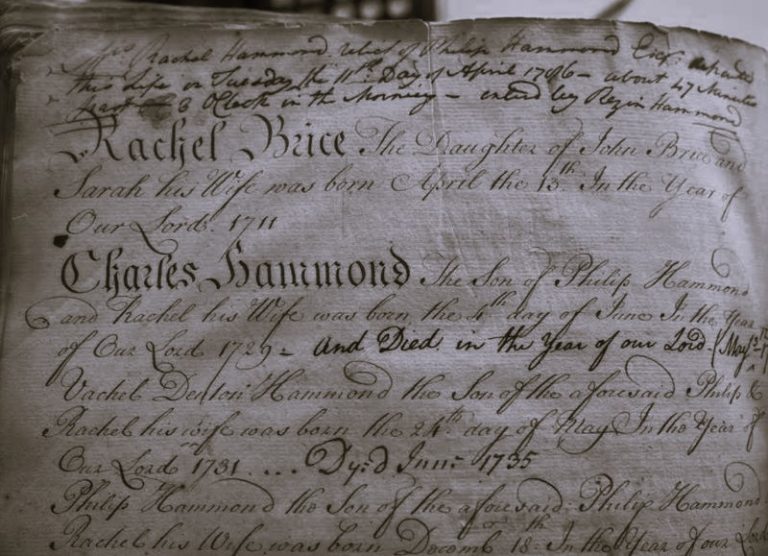 Mrs Rachel Hammond relict of Philip Hammond Esqr. departed
this Life on Tuesday the 11th Day of April 1786 – about 47 Minutes
past 6 OClock in the Morning – enterd by Rezin Hammond
Rachel Brice The Daughter of John Brice and
Sarah his Wife was born April the 13th In the Year of
Our Lord. 1711
Charles Hammond The Son of Philip Hammond
and Rachel his Wife was born the 4th day of June In the Year
of Our Lord 1729 – and Died in the Year of our Lord. May
Vachel Denton Hammond the Son of the aforesaid Philip &
Rachel his wife was born the 24th day of May In the Year of
Our Lord 1731 .... Dy:d June 1735
Philip Hammond the Son of the aforesaid Philip Hammond
Rachel his Wife was born Decemb 18th In the Year of our Lord